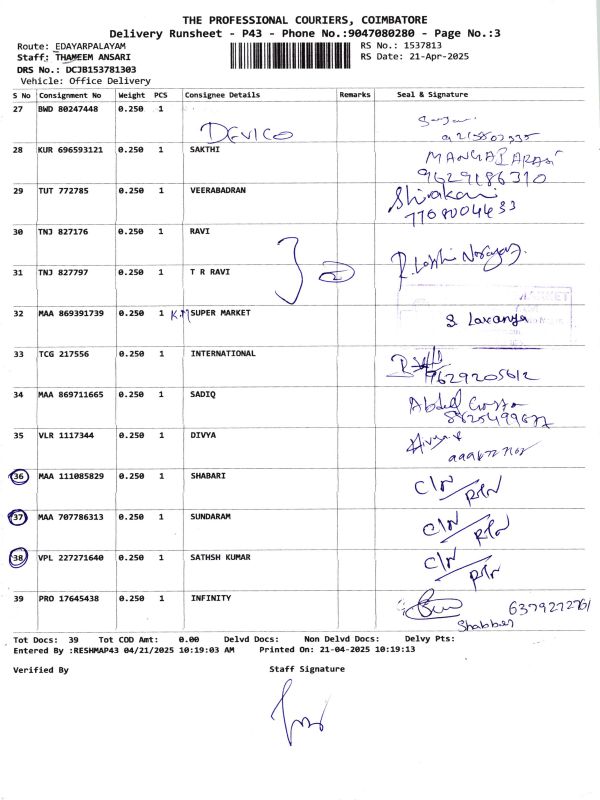 THE PROFESSIONAL COURIERS, COIMBATORE
Delivery Runsheet - P43 - Phone No.:9047080280 - Page No.:3
Route: EDAYARPALAYAM RS No.: 1537813
Staff: THAMEEM ANSARI RS Date: 21-Apr-2025
DRS No.: DCJB153781303
Vehicle: Office Delivery
S No Consignment No Weight PCS Consignee Details Remarks Seal & Signature
27 BWD 80247448 0.250 1
DEVICO
28 KUR 696593121 0.250 1 SAKTHI MANGAIARASI
9629186310
29 TUT 772785 0.250 1 VEERABADRAN
7708004633
30 TNJ 827176 0.250 1 RAVI
31 TNJ 827797 0.250 1 T R RAVI 2
32 MAA 869391739 0.250 1 K.M SUPER MARKET S Lavanya
33 TCG 217556 0.250 1 INTERNATIONAL
9629205612
34 MAA 869711665 0.250 1 SADIQ Abdul
35 VLR 1117344 0.250 1 DIVYA
36 MAA 111085829 0.250 1 SHABARI C/N RTN
37 MAA 707786313 0.250 1 SUNDARAM C/N RTN
38 VPL 227271640 0.250 1 SATHSH KUMAR C/N RTN
39 PRO 17645438 0.250 1 INFINITY
Shabber
Tot Docs: 39 Tot COD Amt: 0.00 Delvd Docs: Non Delvd Docs: Delvy Pts:
Entered By :RESHMAP43 04/21/2025 10:19:03 AM Printed On: 21-04-2025 10:19:13
Verified By Staff Signature